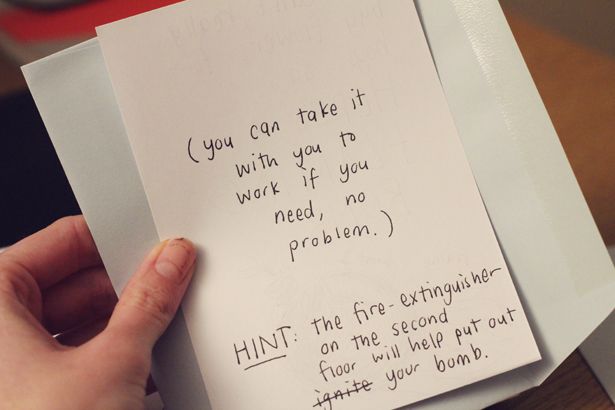 (you can take it
with you to
work if you
need, no
problem.)
HINT: the fire-extinguisher
on the second
floor will help put out
ignite your bomb.